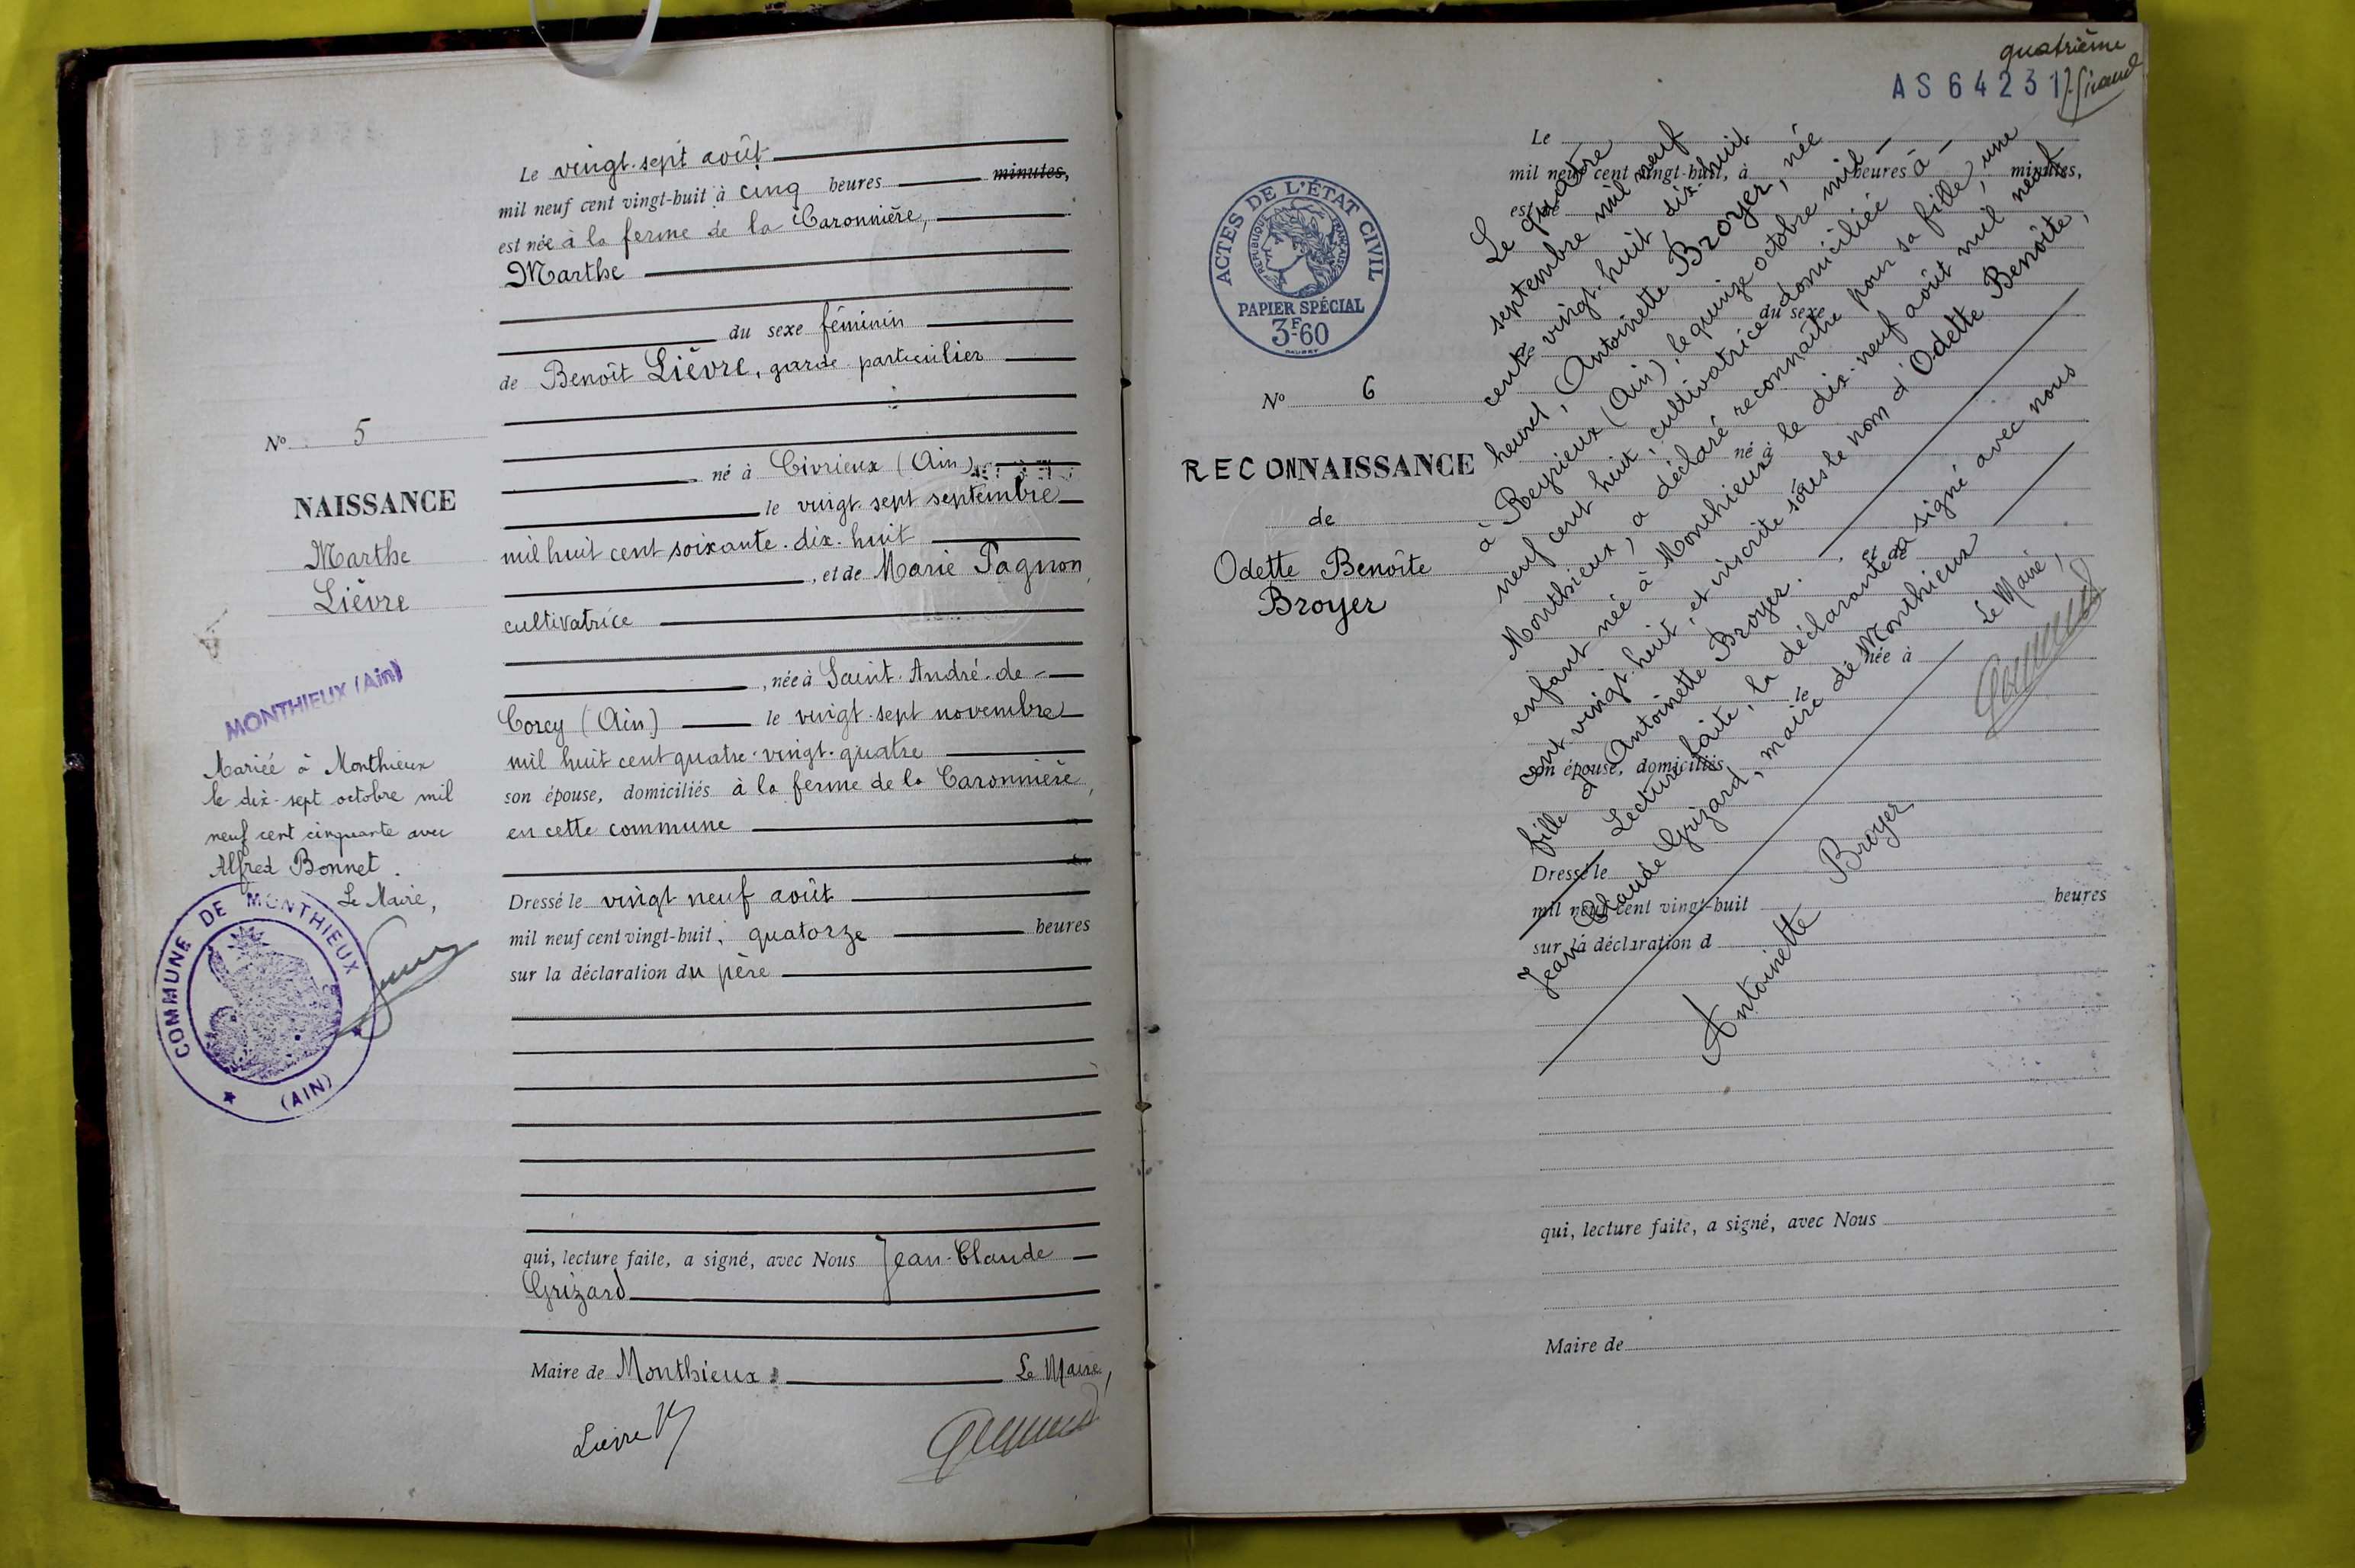 Le vingt-sept août
mil neuf cent vingt-huit à cinq heures minutes,
est née à la ferme de la Caronnière,
Marthe
du sexe féminin
de Benoît Lièvre, garde particulier
né à Civrieux (Ain)
le vingt-sept septembre
mil huit cent soixante-dix-huit
, et de Marie Pagnon,
cultivatrice
, née à Saint-André-de-
Corcy (Ain) le vingt-sept novembre
mil huit cent quatre-vingt-quatre
son épouse, domiciliés à la ferme de la Caronnière,
en cette commune
Dressé le vingt neuf août
mil neuf cent vingt-huit, quatorze heures
sur la déclaration du père
qui, lecture faite, a signé, avec Nous Jean-Claude
Grizard
Maire de Monthieux. Le Maire,
Lièvre B
No 5
NAISSANCE
Marthe
Lièvre
MONTHIEUX (Ain)
Mariée à Monthieux
le dix-sept octobre mil
neuf cent cinquante avec
Alfred Bonnet.
Le Maire,
COMMUNE DE MONTHIEUX
(AIN)
quatrième
AS 64231
Giraud
ACTES DE L'ÉTAT CIVIL
REPUBLIQUE FRANÇAISE
PAPIER SPÉCIAL
3F-60
No 6
RECONNAISSANCE
de
Odette Benoîte
Broyer
Le quatre
septembre mil neuf
cent vingt-huit, dix-huit
heures, Antoinette Broyer, née
à Reyrieux (Ain), le quinze octobre mil
neuf cent huit, cultivatrice domiciliée à
Monthieux, a déclaré reconnaître pour sa fille, une
enfant née à Monthieux le dix-neuf août mil neuf
cent vingt-huit, et inscrite sous le nom d'Odette Benoîte,
fille d'Antoinette Broyer.
Lecture faite, la déclarante a signé avec nous
Jean Claude Grizard, maire de Monthieux
Le Maire,
Antoinette Broyer
Le
mil neuf cent vingt-huit, à heures minutes,
est né
du sexe
de
né à
et de
née à
le
son épouse, domiciliés
Dressé le
mil neuf cent vingt-huit heures
sur la déclaration d
qui, lecture faite, a signé, avec Nous
Maire de